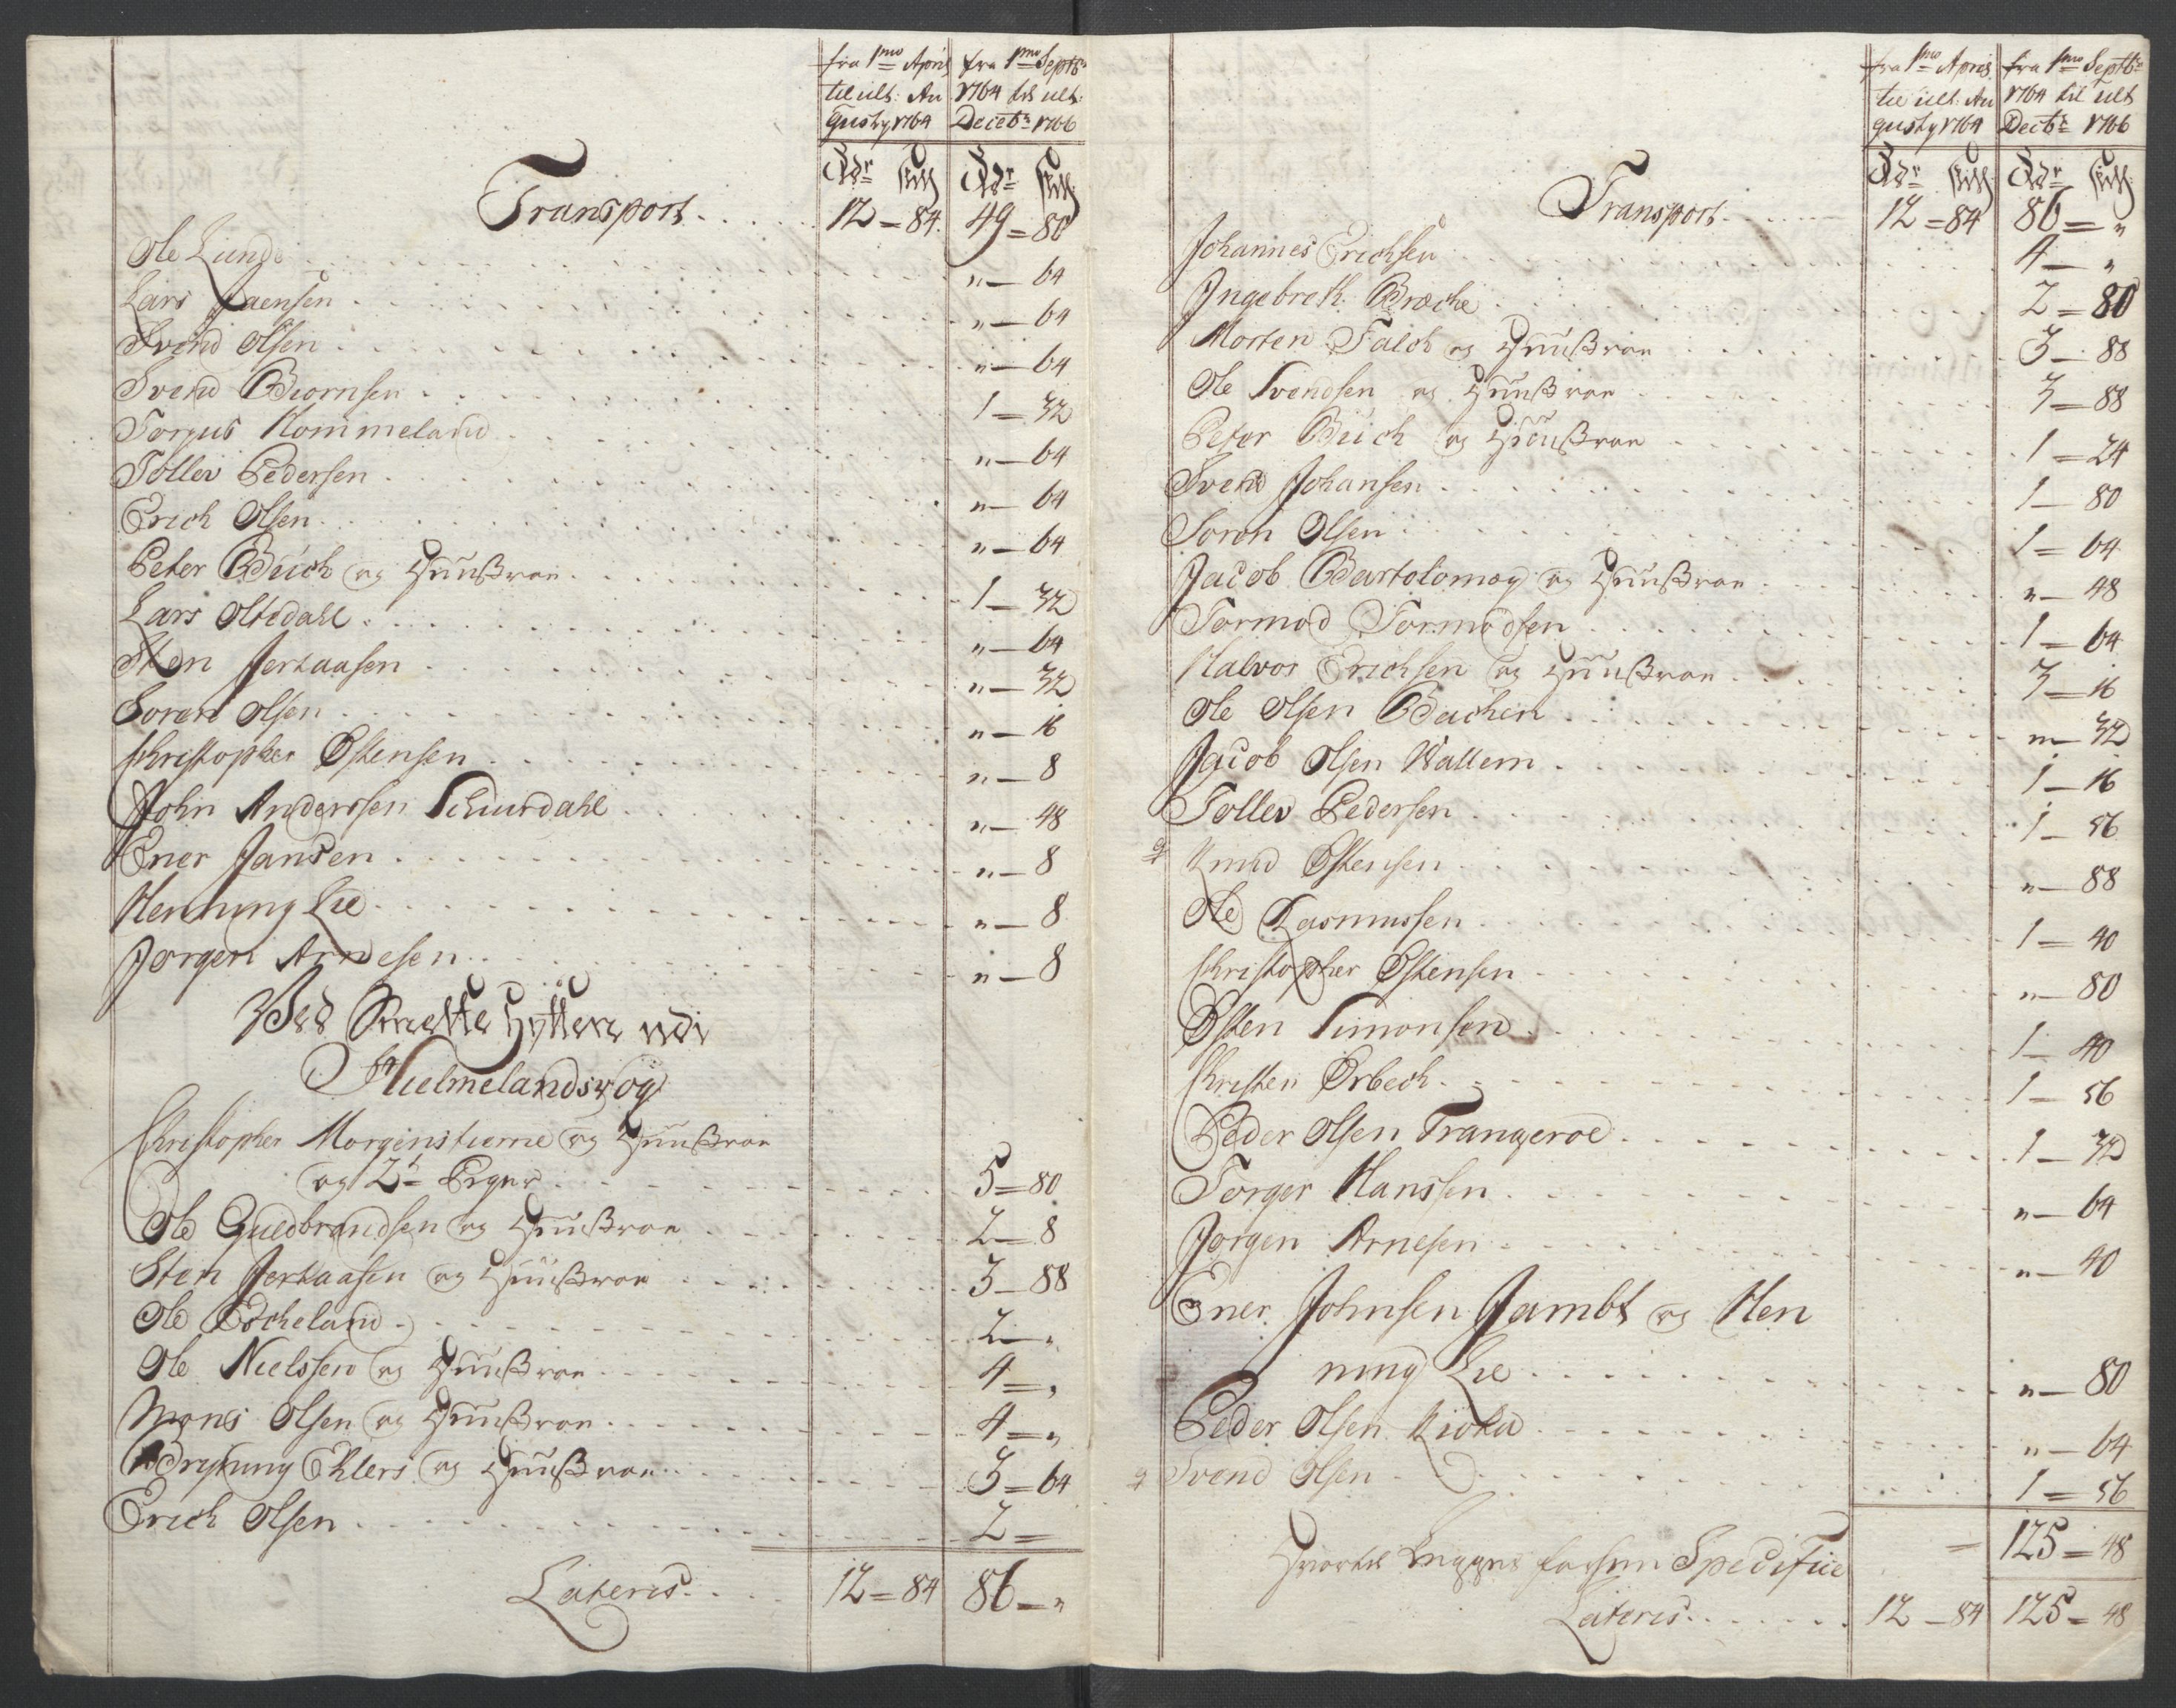 fra 1mo April fra 1mo Septbr
til ult: Au 1764 til ult:
gusty 1764 Decebr 1766
Rdr Sk Rdr Sk
Transport 12 = 84. 49 = 80
Ole Lunde " — 64
Lars Jaensen " — 64
Svend Olsen " — 64
Svend Biornsen 1 = 32
Torgus Hommeland " — 64
Tollev Pedersen " — 64
Erich Olsen " — 64
Peter Buch og Huusßroe 1 — 32
Lars Oltedahl " — 64
Sten Jerkaasen " — 32
Soren Olsen " — 16
Christopher Østensen " — 8
John Anderssen Schurdahl " — 48
Ener Jansen " — 8
Henning Lie " — 8
Jørgen Arnesen " — 8
Ved Smelte Hytten udi
Hielmelandsvog
Christopher Morgenstierne og Huusßroe
og 2de Piger 5 = 80
Ole Guldbrandsen og Huusßroe 2 — 8
Sten Jerkaasen og Huusßroe 3 — 88
Ole Echeland 2 — "
Ole Nielssen og Huusßroe 4 = "
Mons Olsen og Huusßroe 4 = "
Ehlers og Huusßroe 3 = 64
Erich Olsen 2 =
Lateris 12 = 84 86 = "
fra 1mo April fra 1mo Septbr
til ult: Au 1764 til ult
gusty 1764 Decbr 1766
Rdr Sk Rdr Sk
Transport 12 = 84 86 = "
Johannes Erichsen 4 — "
Ingebreth Broche 2 = 80
Morten Falch og Huusßroe 3 — 88
Ole Svendsen og Huusßroe 3 — 88
Peter Buch og Huusßroe 1 = 24
Svend Johansen 1 — 80
Soron Olsen 1 = 64
Jacob Bartolomoy og Huusßroe " — 48
Tormod Tormodsen 1 = 64
Halvor Erichsen og Huusßroe 3 — 16
Ole Olsen Bachen " — 32
Jacob Olsen Wallem 1 — 16
Tollev Pedersen 1 — 56
Knud Østensen " — 88
Ole Rasmussen 1 = 40
Christopher Østensen " — 80
Østen Simonsen 1 — 40
Christen Ørbech 1 — 56
Peder Olsen Trangeroe 1 — 32
Torger Hanssen " — 64
Jørgen Arnesen " — 40
Ener Johnsen Jambt og Hen
ning Lie " — 80
Peder Olsen Kioka " — 64
Svend Olsen 1 = 56
— 125 = 48
Hvortil Specifice
Lateris 12 — 84 125 = 48